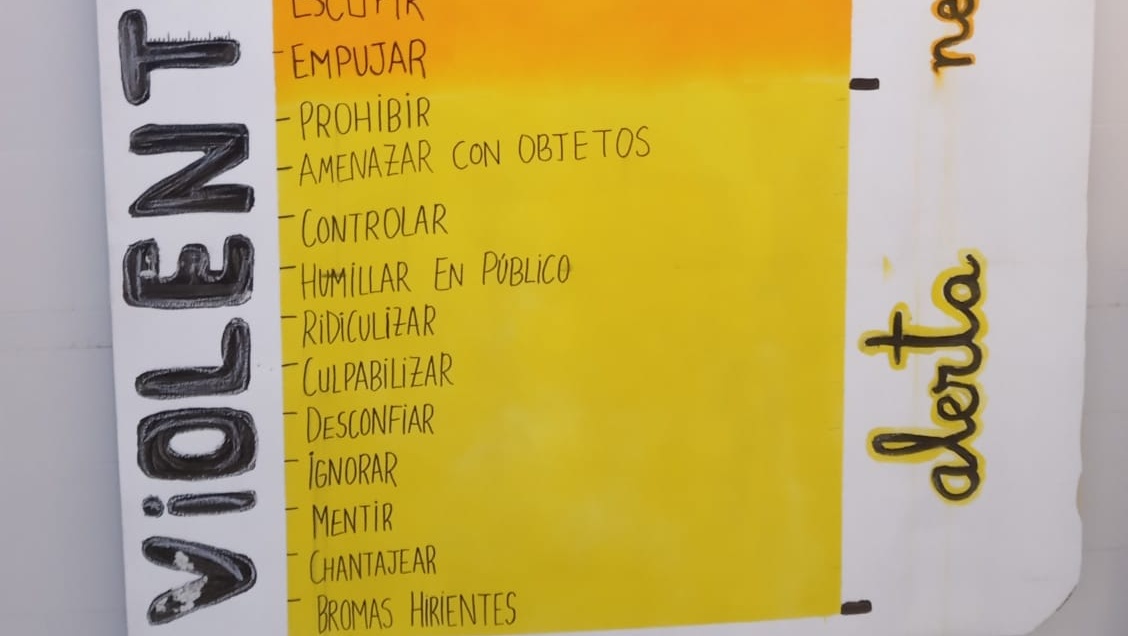 VIOLENT
ESCUPIR
EMPUJAR
PROHIBIR
AMENAZAR CON OBJETOS
CONTROLAR
HUMILLAR EN PÚBLICO
RIDICULIZAR
CULPABILIZAR
DESCONFIAR
IGNORAR
MENTIR
CHANTAJEAR
BROMAS HIRIENTES
ne
alerta